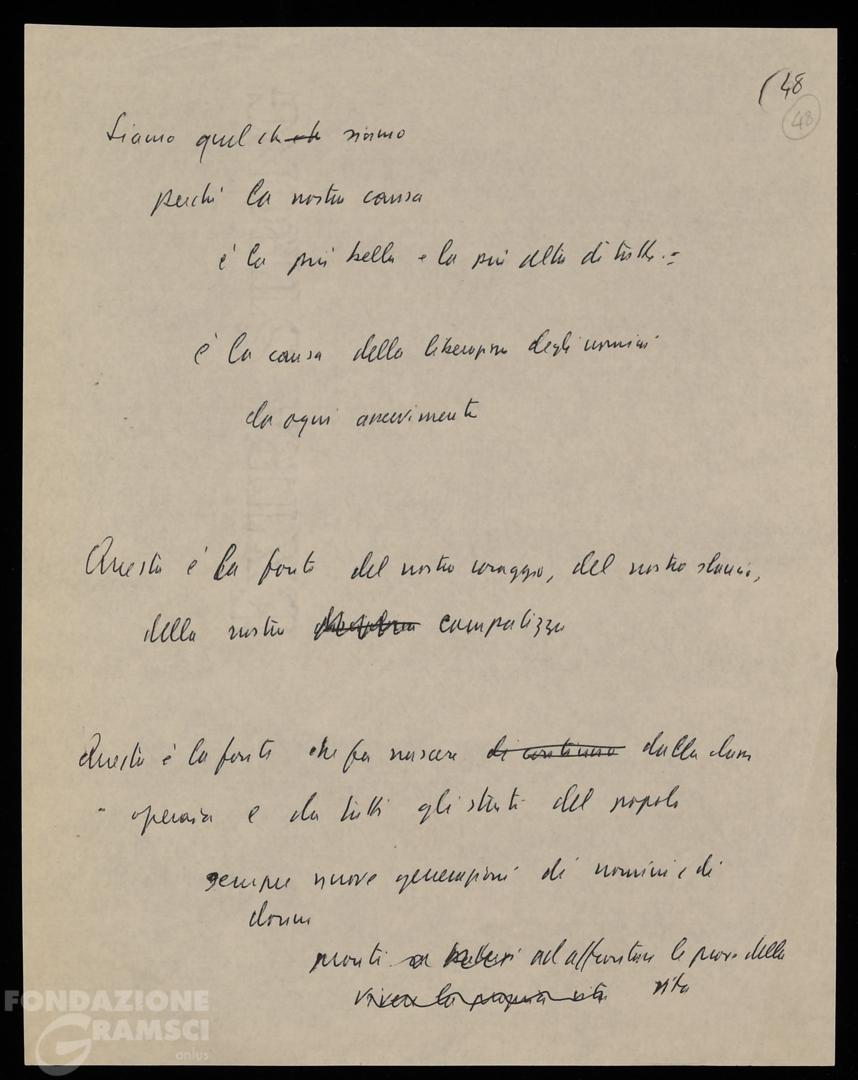 (48
48
Siamo quel che siamo
perché la nostra causa
è la più bella e la più alta di tutte.=
è la causa della liberazione degli uomini
da ogni asservimento
Questa è la fonte del nostro coraggio, del nostro slancio,
della nostra compattezza
Questa è la fonte che fa nascere di continuo dalla classe
operaia e da tutti gli strati del popolo
sempre nuove generazioni di uomini e di
donne
pronti a battersi ad affrontare le prove della
vivere la propria vita vita
FONDAZIONE
GRAMSCI
onlus